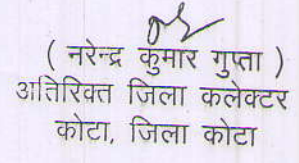 ( नरेन्द्र कुमार गुप्ता )
अतिरिक्त जिला कलेक्टर
कोटा, जिला कोटा